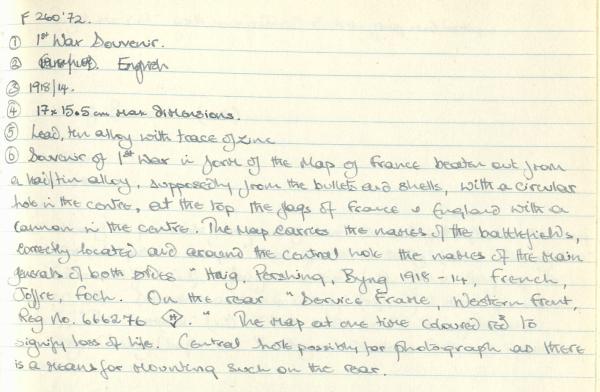 F260'72.
① 1st War Souvenir.
② English
③ 1918/14.
④ 17 x 15.5 cm max dimensions.
⑤ Lead, tin alloy with trace of zinc
⑥ Souvenir of 1st War in form of the Map of France beaten out from
a tin alloy, supposedly from the bullets and shells, with a circular
hole in the centre, at the top the flags of France & England with a
cannon in the centre. The Map carries the names of the battlefields,
correctly located and around the central hole the names of the main
generals of both sides " Haig, Pershing, Byng 1918-14, French,
Joffre, Foch. On the rear " Service Frame, Western Front,
Reg No. 666276 H. " The Map at one time coloured red to
signify loss of life. Central hole possibly for photograph as there
is a means for mounting such on the rear.